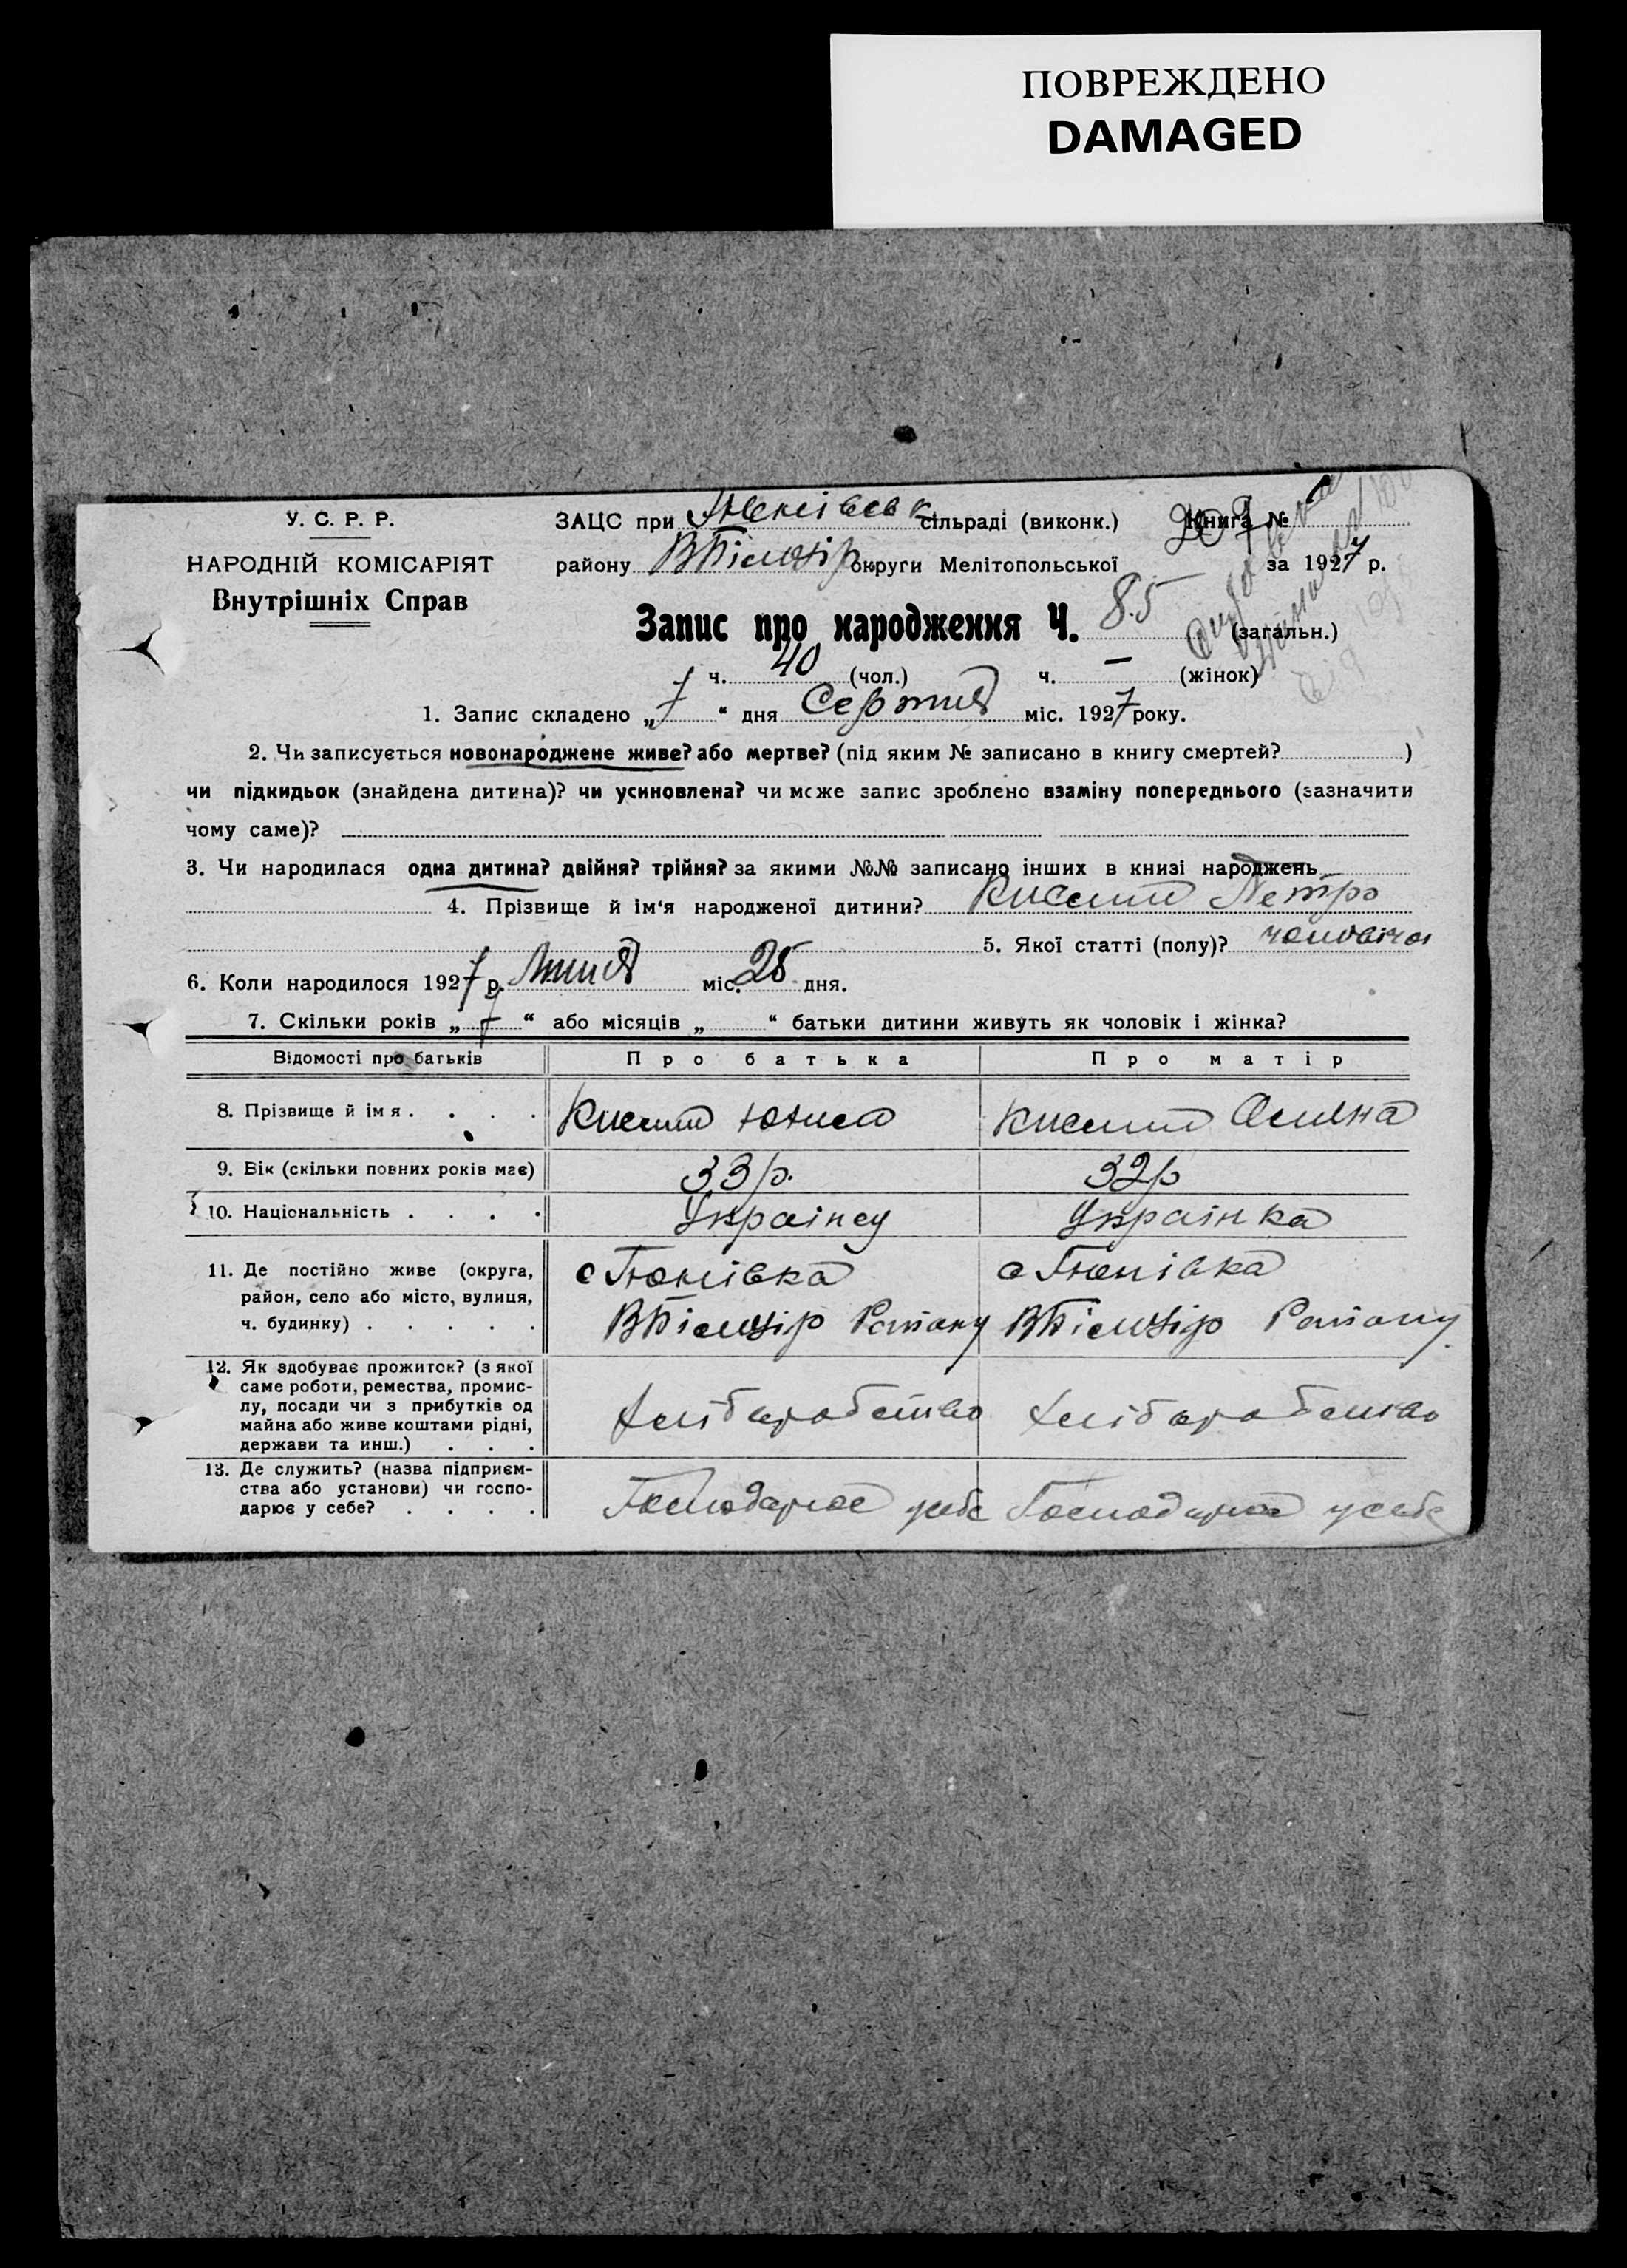 ПОВРЕЖДЕНО
DAMAGED
У. С. Р. Р.
НАРОДНІЙ КОМІСАРІЯТ
Внутрішніх Справ
ЗАЦС при сільраді (виконк.) Книга №
району округи Мелітопольської за 1927 р.
Запис про народження Ч. 85 (загальн.)
ч. 40 (чол.) ч. — (жінок)
1. Запис складено „7“ дня Серпня міс. 1927 року.
2. Чи записується новонароджене живе? або мертве? (під яким № записано в книгу смертей? )
чи підкидьок (знайдена дитина)? чи усиновлена? чи може запис зроблено взаміну попереднього (зазначити
чому саме)?
3. Чи народилася одна дитина? двійня? трійня? за якими №№ записано інших в книзі народжень
4. Прізвище й ім‘я народженої дитини? Петро
5. Якої статті (полу)? чоловіча
6. Коли народилося 1927 р. Липня міс. 25 дня.
7. Скільки років „7“ або місяців „ “ батьки дитини живуть як чоловік і жінка?
Відомості про батьків Про батька Про матір
8. Прізвище й імя . . . .
9. Вік (скільки повних років має) 33 р. 32 р
10. Національність . . . . Українец Українка
11. Де постійно живе (округа, с Тюнівка с Тюнівка
район, село або місто, вулиця,
ч. будинку) . . . . . Району Району
12. Як здобуває прожиток? (з якої
саме роботи, ремества, промис-
лу, посади чи з прибутків од хліборобство хліборобство
майна або живе коштами рідні,
держави та инш.) . . .
13. Де служить? (назва підприєм-
ства або установи) чи госпо- Господарює у себе Господарює у себе
дарює у себе? . . . .